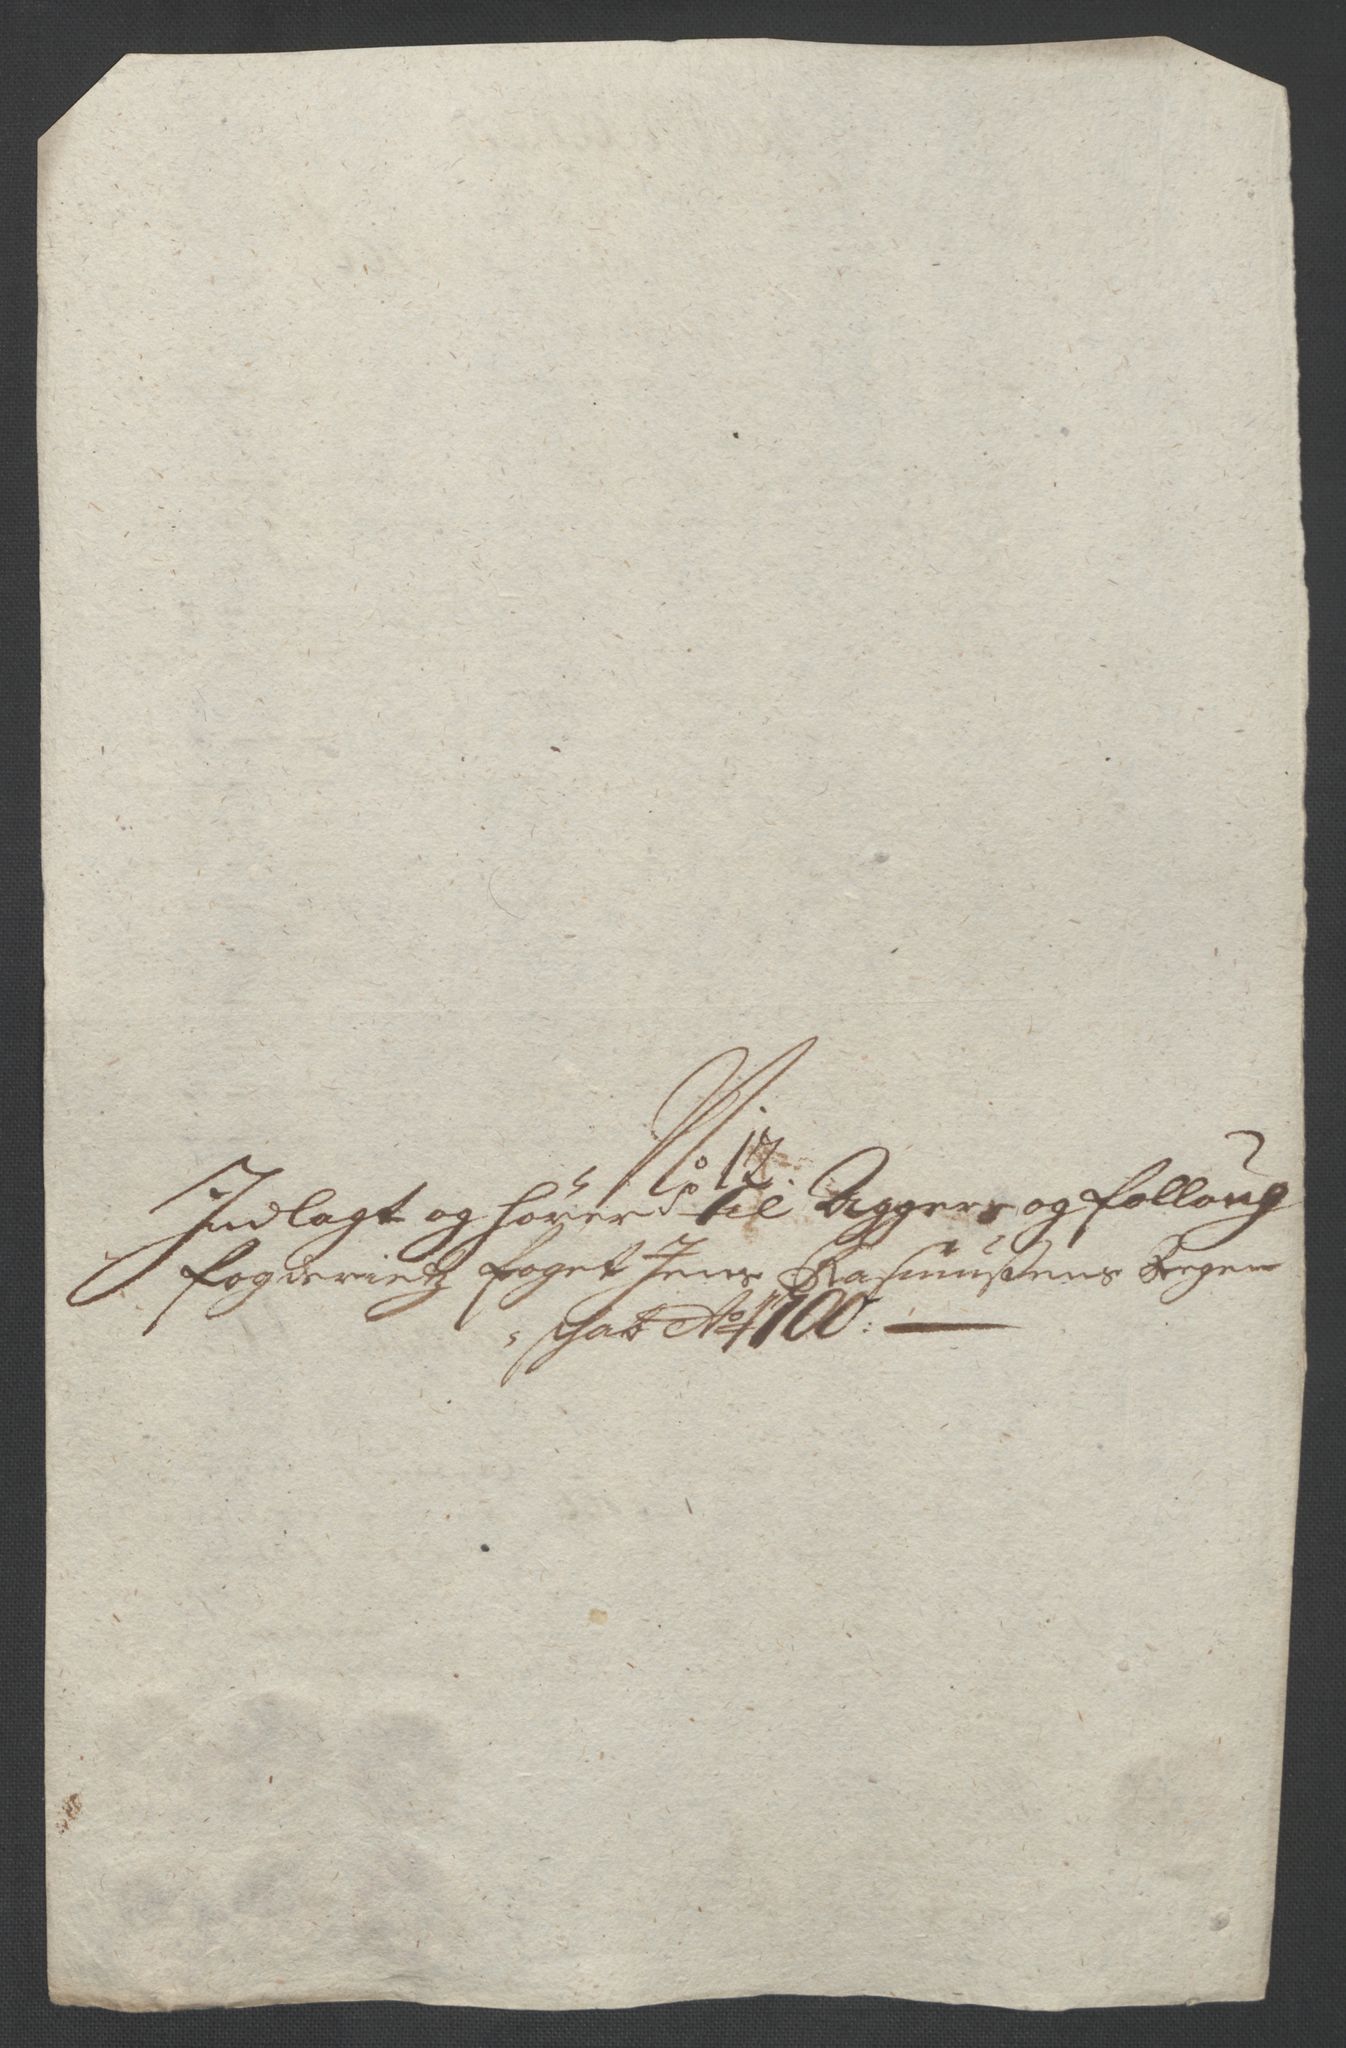 No 17.
Indlagt og hörer til Aggers og folloug
fogderietz foget Jens Rasmusens Regen
schab Ao 1700: